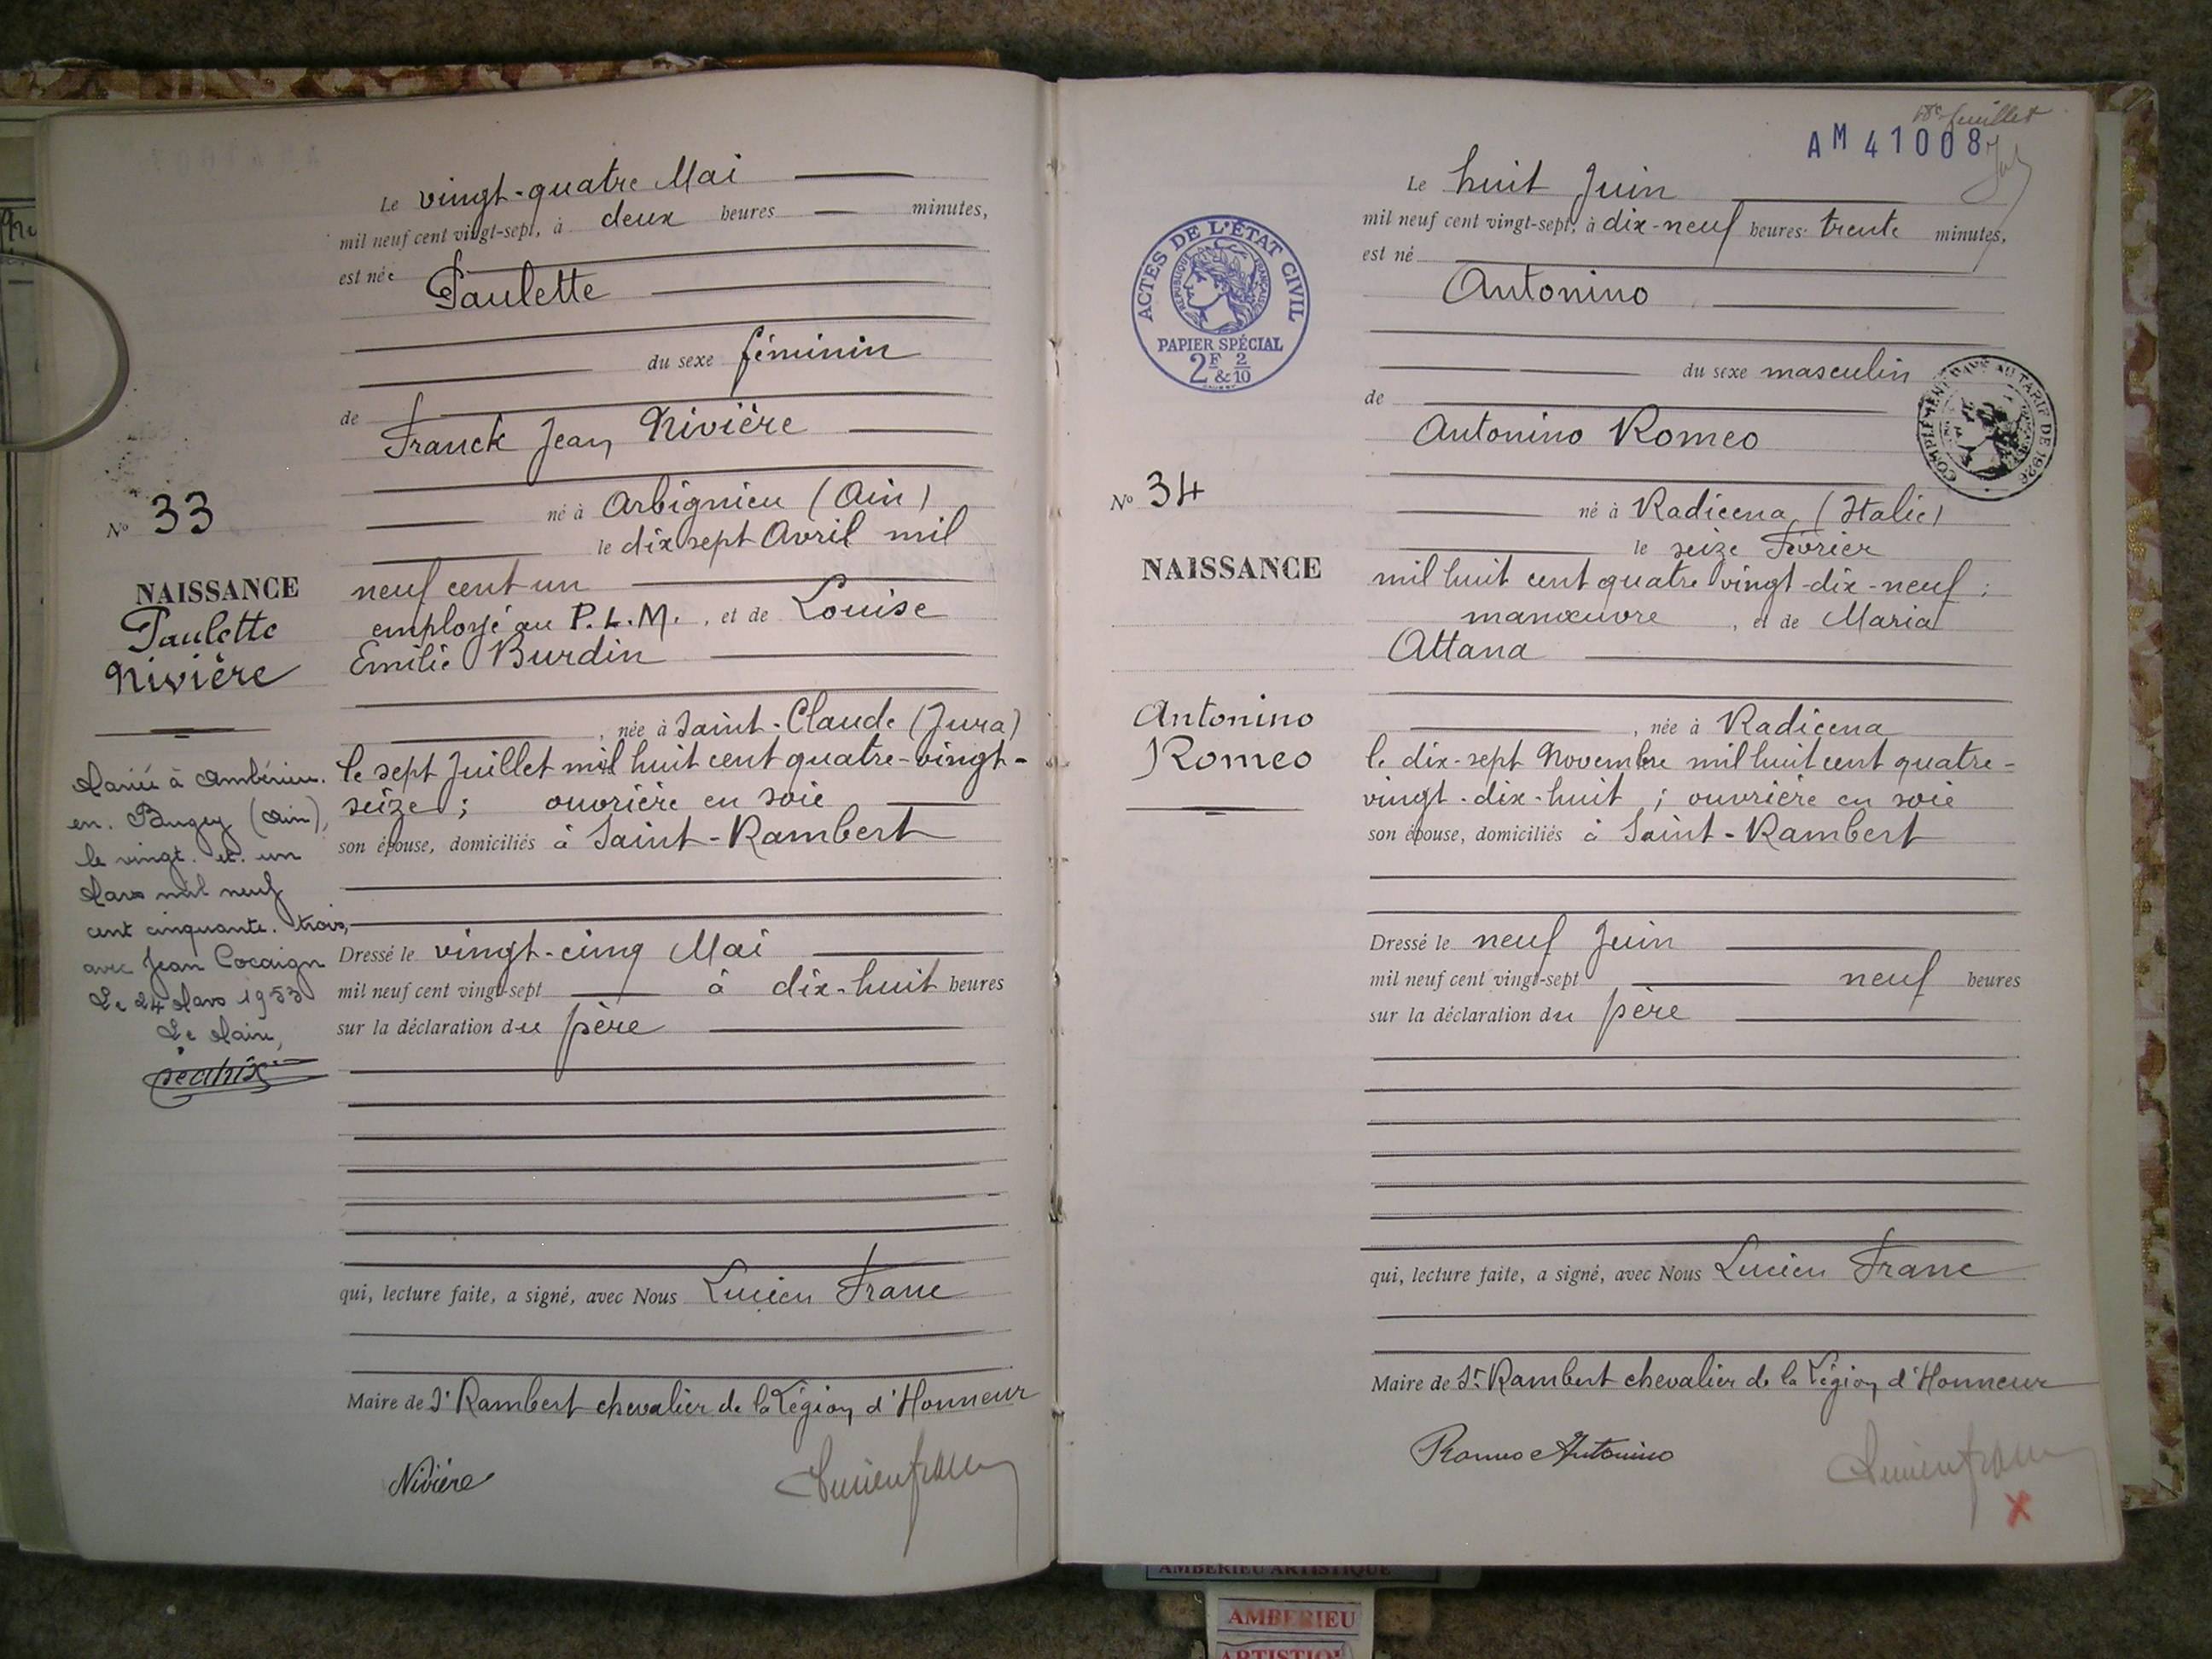 Le vingt-quatre Mai
mil neuf cent vingt-sept, à deux heures minutes,
est née
Paulette
du sexe féminin
de
Franck Jean Nivière
né à Arbignieu (Ain)
le dix sept Avril mil
neuf cent un
employé au P.L.M. , et de Louise
Emilie Burdin
, née à Saint-Claude (Jura)
le sept Juillet mil huit cent quatre-vingt-
seize ; ouvrière en soie
son épouse, domiciliés à Saint-Rambert
Dressé le vingt-cinq Mai
mil neuf cent vingt-sept à dix-huit heures
sur la déclaration du père
qui, lecture faite, a signé, avec Nous Lucien Franc
Maire de St Rambert chevalier de la Légion d'Honneur
Nivière
Lucien franc
No 33
NAISSANCE
Paulette
Nivière
Mariée à Ambérieu.
en. Bugey (Ain),
le vingt. et. un
Mars mil neuf
cent cinquante. trois,
avec Jean Cocaign
Le 24 Mars 1953
Le Maire,
18e feuillet
AM 41008
Le huit Juin
mil neuf cent vingt-sept, à dix-neuf heures trente minutes,
est né
Antonino
du sexe masculin
de
Antonino Romeo
né à Radicena (Italie)
le seize Février
mil huit cent quatre vingt-dix-neuf ;
manœuvre , et de Maria
Attana
, née à Radicena
le dix-sept Novembre mil huit cent quatre-
vingt-dix-huit ; ouvrière en soie
son épouse, domiciliés à Saint-Rambert
Dressé le neuf Juin
mil neuf cent vingt-sept neuf heures
sur la déclaration du père
qui, lecture faite, a signé, avec Nous Lucien Franc
Maire de St Rambert chevalier de la Légion d'Honneur
Romeo Antonino
Lucien franc
No 34
NAISSANCE
Antonino
Romeo
ACTES DE L'ÉTAT CIVIL
RÉPUBLIQUE FRANÇAISE
PAPIER SPÉCIAL
2F & 2/10
COMPLÉMENT PAYÉ AU TARIF DE 1926
AMBERIEU ARTISTIQUE
AMBERIEU